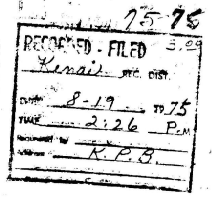 75-75
RECORDED - FILED
3.00
Kenai REC. DIST.
DATE 8-19 1975
TIME 2:26 P.M
Requested by
Address K.P.B.